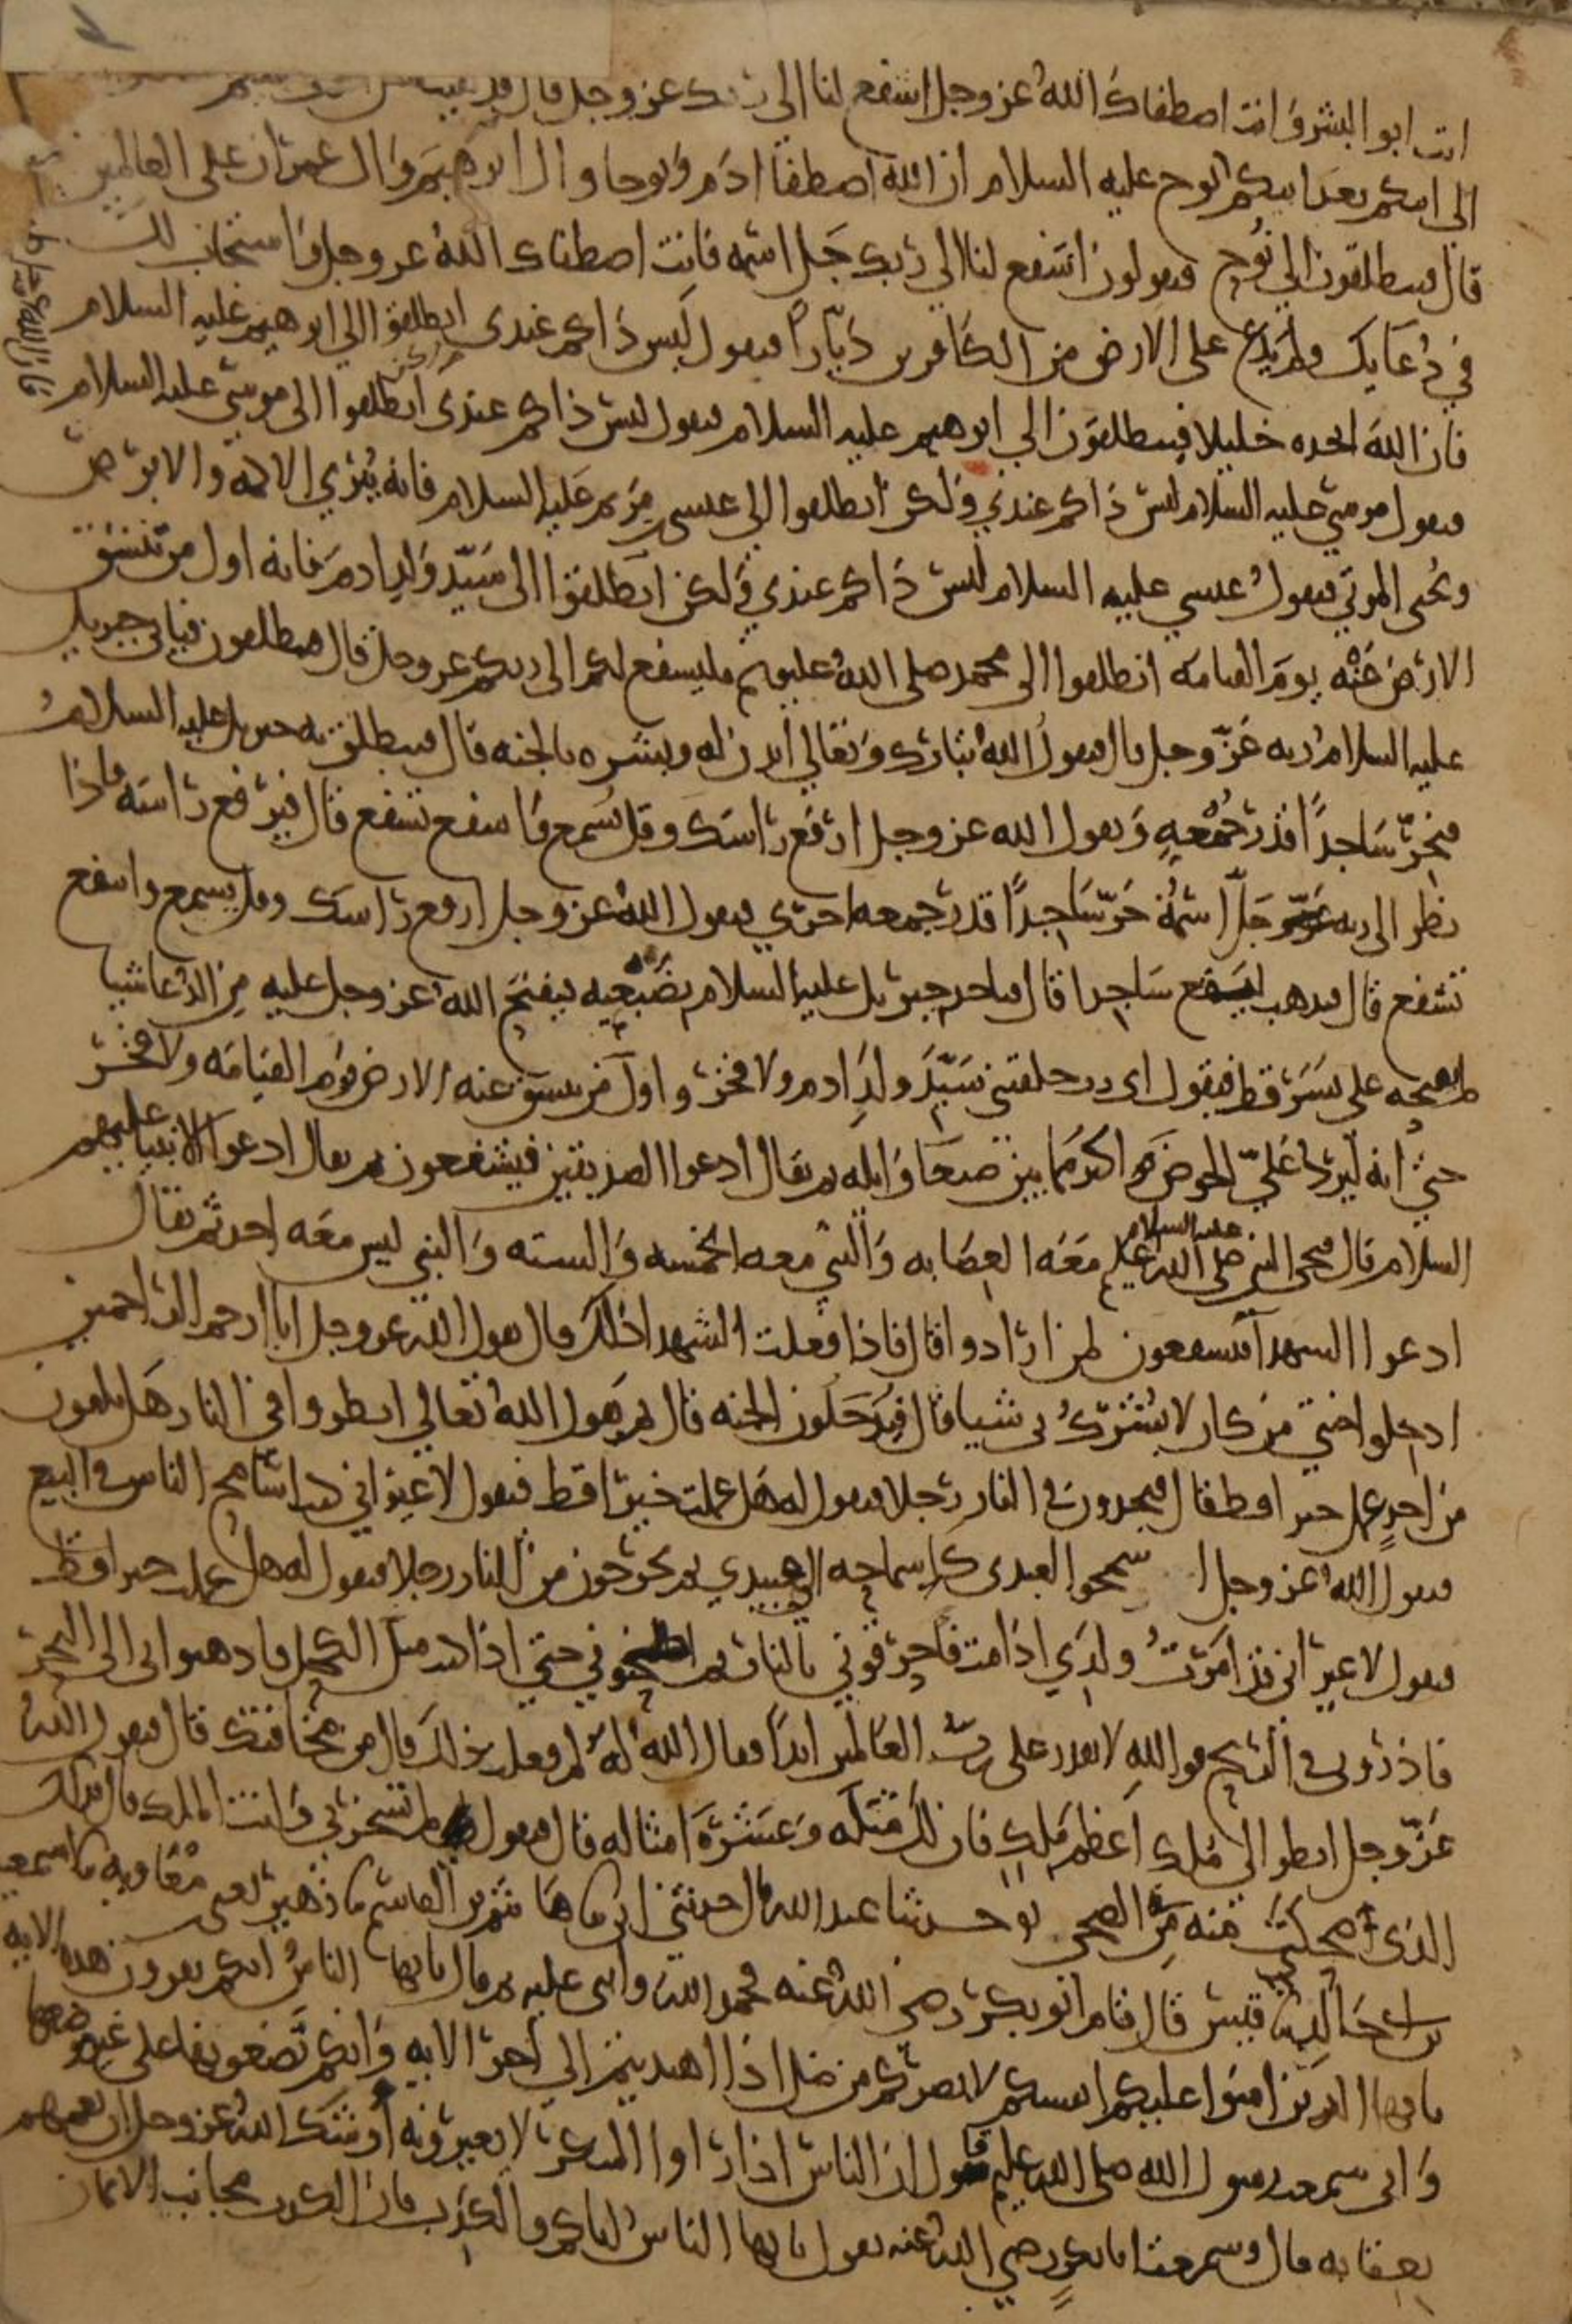 انت ابو البشر وانت اصطفاك الله عز وجل اشفع لنا الى ربك عز وجل قال قد لقيت
الى ابيكم بعد ابيكم الى نوح عليه السلام ان الله اصطفا ادم ونوحا وال ابرهيم وال عمران على العالمين
قال فينطلقون الى نوح فيقولون اشفع لنا الى ربك جل اسمه فانت اصطفاك الله عز وجل واستجاب لك
في دعايك ولم يدع على الارض من الكافرين ديارا فيقول ليس ذاكم عندي انطلقوا الى ابرهيم عليه السلام
فان الله اتخذه خليلا فينطلقون الى ابرهيم عليه السلام فيقول ليس ذاكم عندي ولكن انطلقوا الى موسى عليه السلام
فيقول موسى عليه السلام ليس ذاكم عندي ولكن انطلقوا الى عيسى بن مريم عليه السلام فانه يبرى الاكمه والابرص
ويحيى الموتى فيقول عيسى عليه السلام ليس ذاكم عندي ولكن انطلقوا الى سيد ولد ادم فانه اول من تنشق
الارض عنه يوم القيامه انطلقوا الى محمد صلى الله عليه وسلم فليشفع لكم الى ربكم عز وجل قال فينطلقون فياتى جبريل
عليه السلام ربه عز وجل قال فيقول الله تبارك وتعالى ايذن له وبشره بالجنه قال فينطلق به جبريل عليه السلام
فيخر ساجدا قدر جمعه ويقول الله عز وجل ارفع راسك وقل تسمع واشفع تشفع قال فيرفع راسه فاذا
نظر الى ربه عز وجل اسمه خر ساجدا قدر جمعه اخرى فيقول الله عز وجل ارفع راسك وقل يسمع واشفع
تشفع قال فيذهب ليقع ساجدا قال فياخذ جبريل عليه السلام بضبعيه فيفتح الله عز وجل عليه من الدعا شيا
لم يفتحه على بشر قط فيقول اى رب خلقتنى سيد ولد ادم ولا فخر واول من تنشق عنه الارض يوم القيامه ولا فخر
حتى انه ليرد على الحوض اكثر مما بين صنعا وايله ثم يقال ادعوا الصديقين فيشفعون ثم يقال ادعوا الانبيا عليهم
السلام قال فيجى النبى عليه السلام معه العصابه والنبى معه الخمسه والسته والنبى ليس معه احد ثم يقال
ادعوا الشهدا فيشفعون لمن ارادوا قال فاذا فعلت الشهدا ذلك قال يقول الله عز وجل انا ارحم الراحمين
ادخلوا جنتى من كان لا يشرك بى شيا قال فيدخلون الجنه قال ثم يقول الله تعالى انظروا فى النار هل تلقون
من احد عمل خيرا قط قال فيجدون فى النار رجلا فيقول له هل عملت خيرا قط فيقول لا غير انى كنت اسامح الناس فى البيع
فيقول الله عز وجل اسمحوا لعبدى كاسماحه الى عبيدي ثم يخرجون من النار رجلا فيقول له هل عملت خيرا قط
فيقول لا غير انى قد امرت ولدي اذا مت فاحرقونى بالنار ثم اطحنونى حتى اذا كنت مثل الكحل فاذهبوا بى الى البحر
فاذرونى فى الريح فوالله لا يقدر على رب العالمين ابدا فقال الله له لم فعلت ذلك قال من مخافتك قال فيقول الله
عز وجل انظر الى ملك اعظم ملك فان لك مثله وعشرة امثاله قال فيقول لم تسخر بى وانت الملك قال فذلك
الذى ضحكت منه من الضحى حدثنا عبد الله قال حدثنى ابى ثنا هاشم بن القاسم ثنا زهير يعنى بن معاويه ثنا اسمعيل
بن ابى خالد ثنا قيس قال قام ابو بكر رضى الله عنه فحمد الله واثنى عليه ثم قال يايها الناس انكم تقرون هذه الايه
يايها الذين امنوا عليكم انفسكم لا يضركم من ضل اذا اهتديتم الى اخر الايه وانكم تضعونها على غير موضعها
وانى سمعت رسول الله صلى الله عليه وسلم يقول ان الناس اذا راوا المنكر لا يغيرونه اوشك الله عز وجل ان يعمهم
بعقابه قال وسمعت ابا بكر رضى الله عنه يقول يايها الناس اياكم والكذب فان الكذب مجانب الايمان